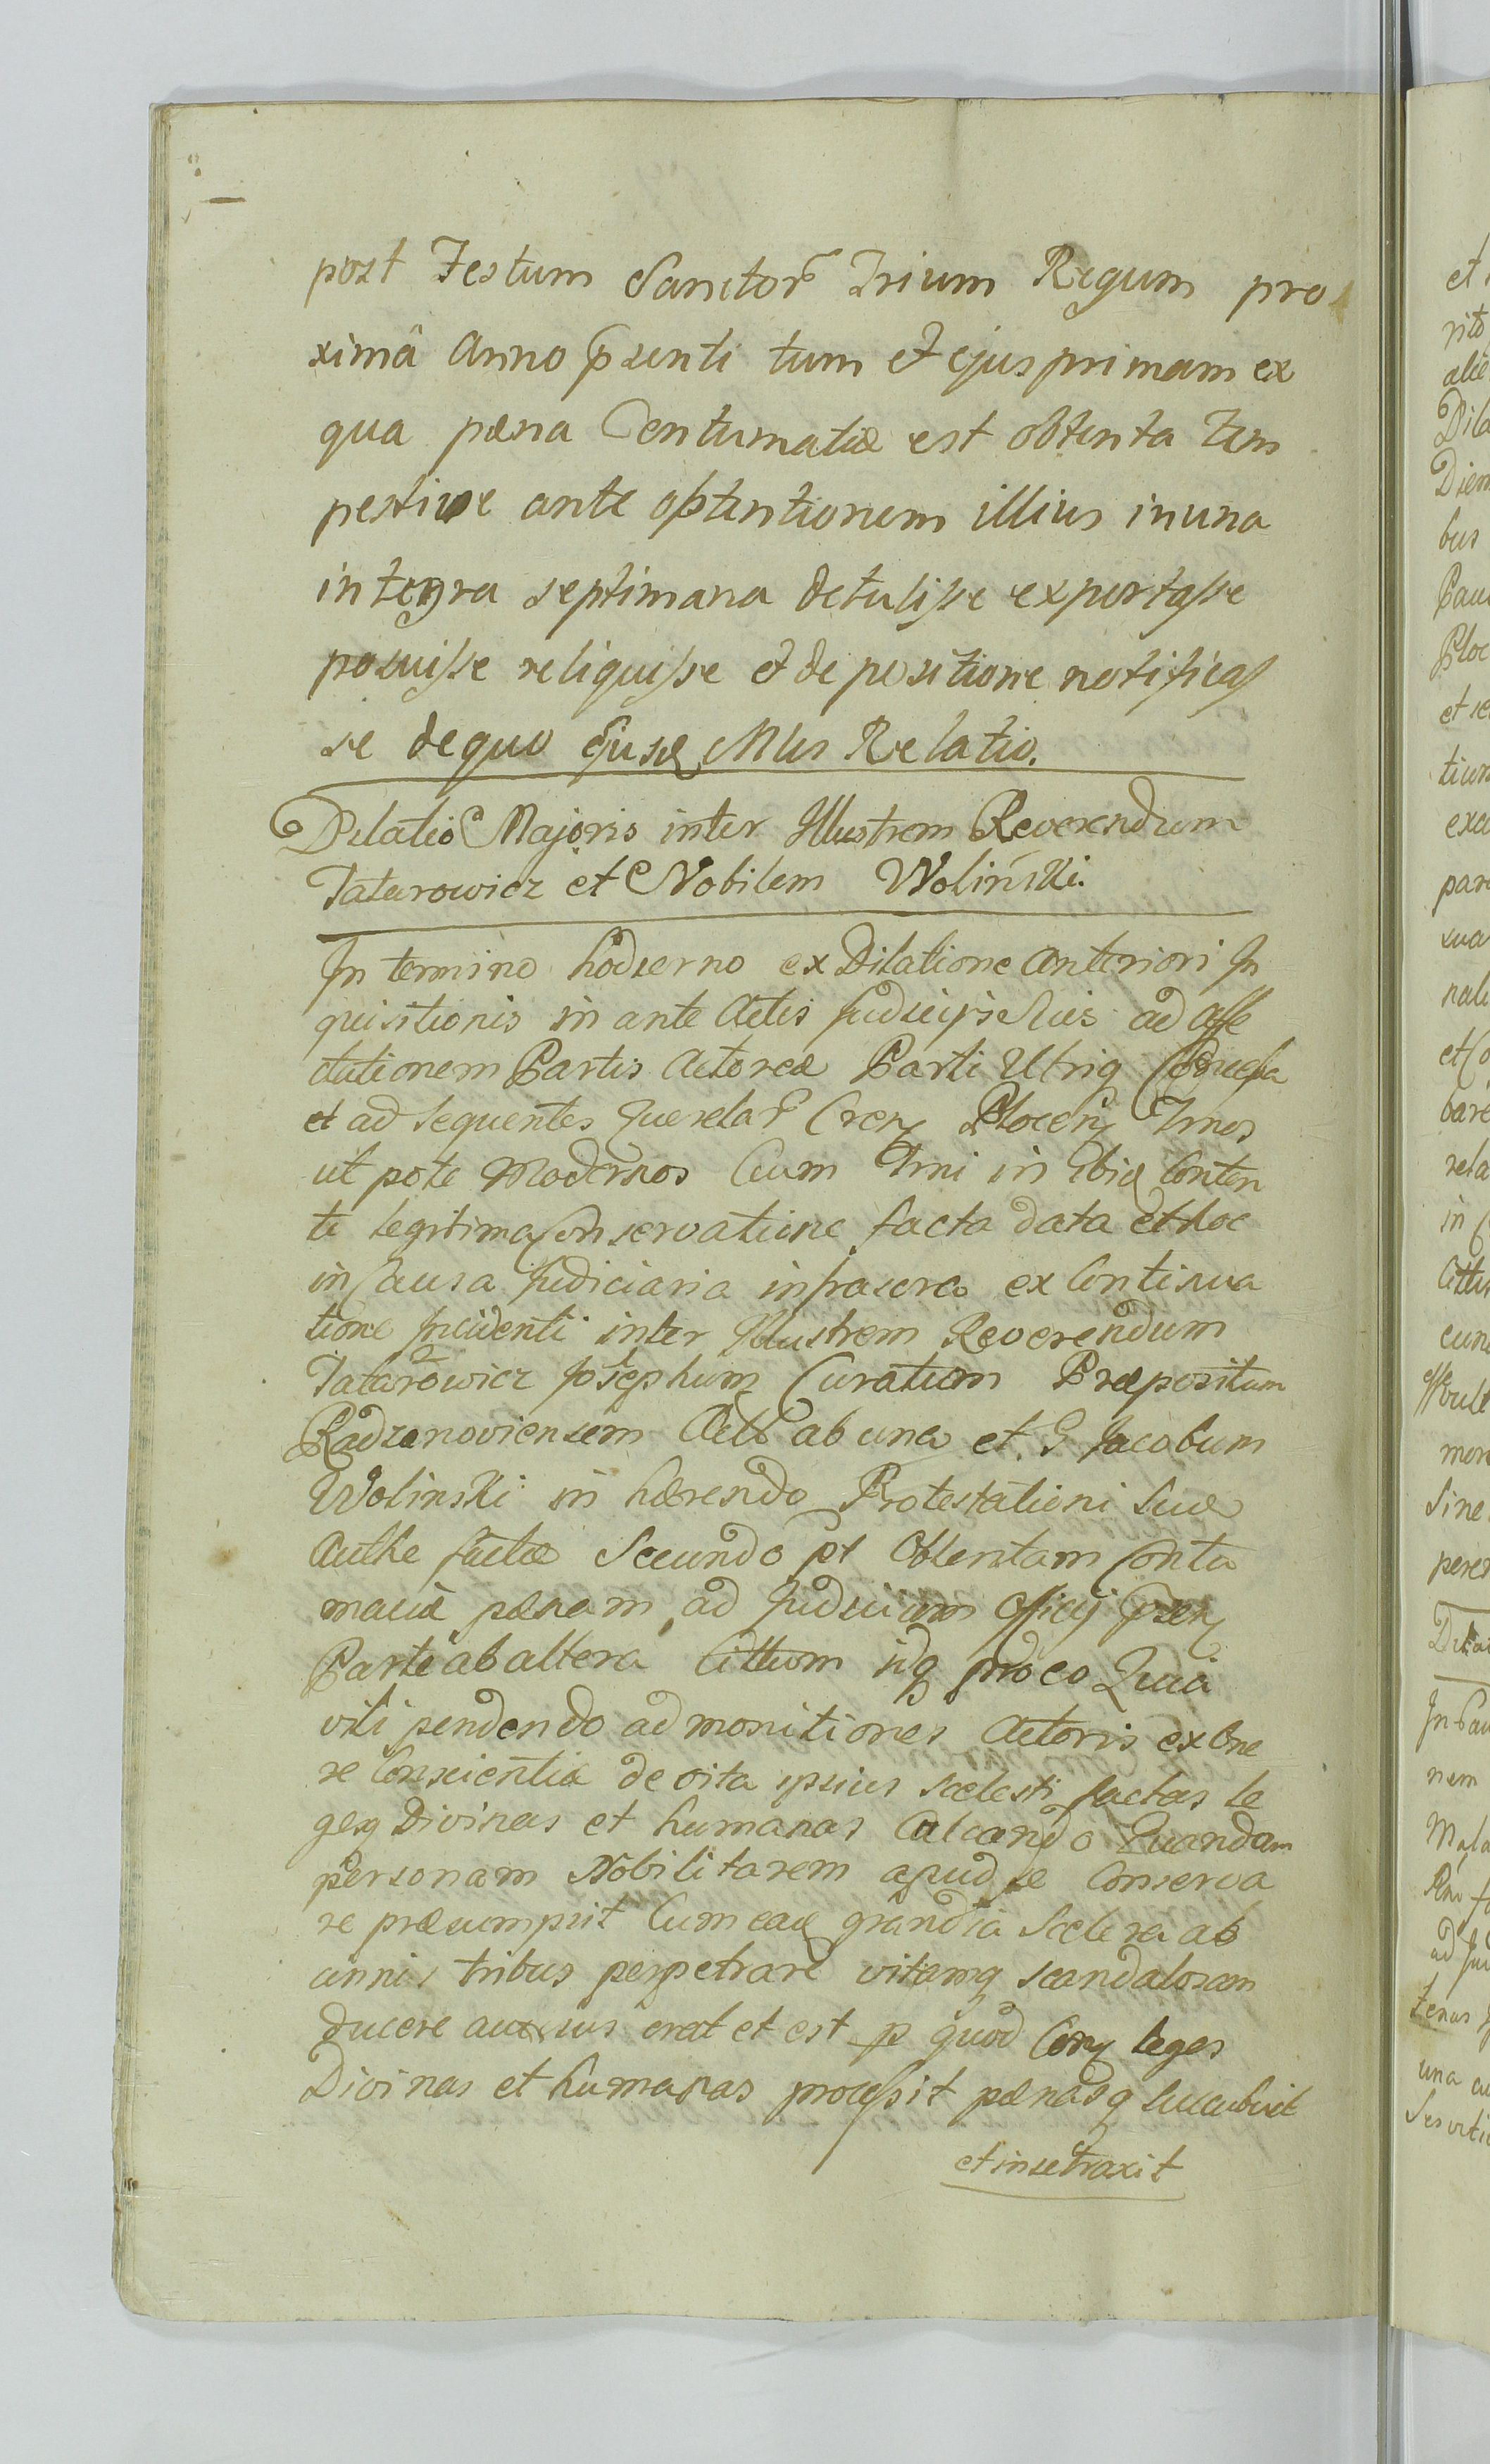 post Festum Sanctor Trium Regum pro
ximâ Anno pzenti tum et ejus primam ex
qua pæna Contumatiæ est obtenta tem
pestive ante obtentionem illius in una
integra septimana detulisse exportasse
posuisse reliquisse et de positione notificas
se de quo ejusd Mlis Relatio.
Dilatio Majoris inter Illustrem Reverendum
Tatarowicz et Nobilem Woliński.
In termino hodierno ex Dilatione Anteriori In
quisitionis in ante Actis Judicijs ad affe
ctationem Partis Actoreæ Parti Utriq Concessa
et ad sequentes Querelar Cren Plocen Tmos
ut pote Modernos Cum Tmi in Ibid Conten
ti legitima Conservatione facta data et hoc
in Causa Judiciaria infrascro ex Continua
tione Incidenti inter Illustrem Reverendum
Tatarowicz Josephum Curatum Præpositum
Radzanoviensem Act ab una et G Jacobum
Wolinski in hærendo Protestationi Suæ
Authe factæ Secundo pt Obtentam Contu
maciæ pænam ad Judicium Officij pzen
Parte ab altera Cittum idq pro eo Quia
vili pendendo admonitiones Actoris ex One
re Conscientiæ de vita ipsius scelesti factas le
gesq Divinas et humanas Calcando Quandam
personam Nobilitarem apud se Conserva
re præsumpsit Cum eaq grandia Scelera ab
annis tribus perpetrare vitamq scandalosam
ducere ausus erat et est p quod Con leges
Divinas et humanas processit pænasq succubuit
et in se traxit
et
rito
Dila
Diem
bus
Ploc
et se
tium
nali
bare
rela
in
mon
Sine
perem
nem
Mala
ad Jud
una